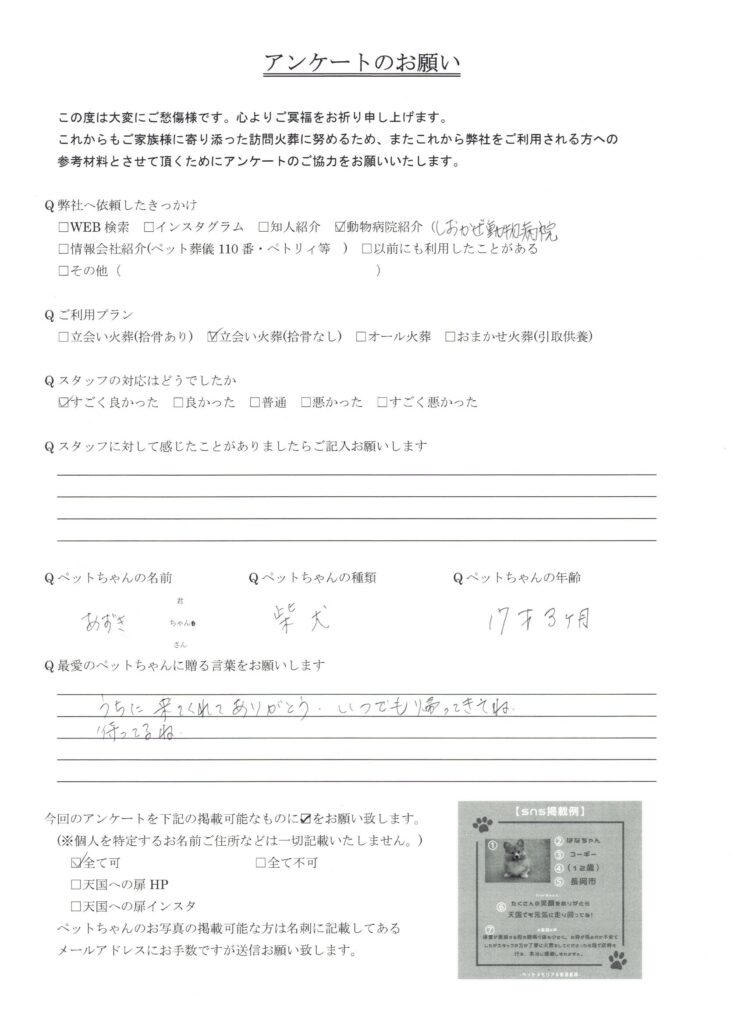 アンケートのお願い
この度は大変にご愁傷様です。心よりご冥福をお祈り申し上げます。
これからもご家族様に寄り添った訪問火葬に努めるため、またこれから弊社をご利用される方への
参考材料とさせて頂くためにアンケートのご協力をお願いいたします。
Q 弊社へ依頼したきっかけ
□WEB 検索 □インスタグラム □知人紹介 ☑動物病院紹介（しおかぜ動物病院
□情報会社紹介(ペット葬儀 110 番・ペトリィ等 ) □以前にも利用したことがある
□その他（ ）
Q ご利用プラン
□立会い火葬(拾骨あり) ☑立会い火葬(拾骨なし) □オール火葬 □おまかせ火葬(引取供養)
Q スタッフの対応はどうでしたか
☑すごく良かった □良かった □普通 □悪かった □すごく悪かった
Q スタッフに対して感じたことがありましたらご記入お願いします
Q ペットちゃんの名前 Q ペットちゃんの種類 Q ペットちゃんの年齢
君
あずき ちゃん 柴犬 17才3ヶ月
さん
Q 最愛のペットちゃんに贈る言葉をお願いします
うちに来てくれてありがとう. いつでも帰ってきてね.
待ってるね.
今回のアンケートを下記の掲載可能なものに☑をお願い致します。
(※個人を特定するお名前ご住所などは一切記載いたしません。)
☑全て可 □全て不可
□天国への扉 HP
□天国への扉インスタ
ペットちゃんのお写真の掲載可能な方は名刺に記載してある
メールアドレスにお手数ですが送信お願い致します。
【sns掲載例】
① ② はなちゃん
③ コーギー
④ (12歳)
⑤ 長岡市
⑥ たくさんの笑顔をありがとう
天国でも元気に走り回ってね!
⑦